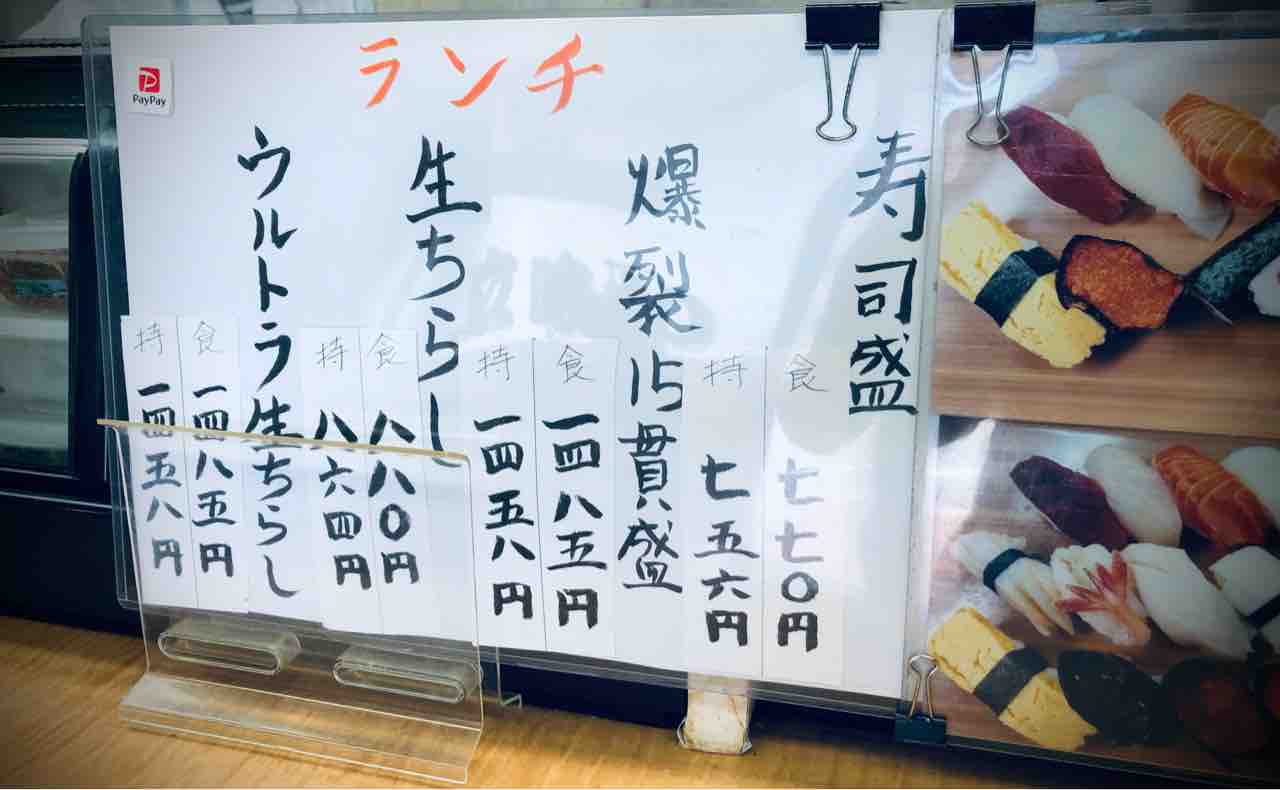 ランチ
寿司盛
食 七七〇円
持 七五六円
爆裂15貫盛
食 一四八五円
持 一四五八円
生ちらし
食 八八〇円
持 八六四円
ウルトラ生ちらし
食 一四八五円
持 一四五八円
PayPay